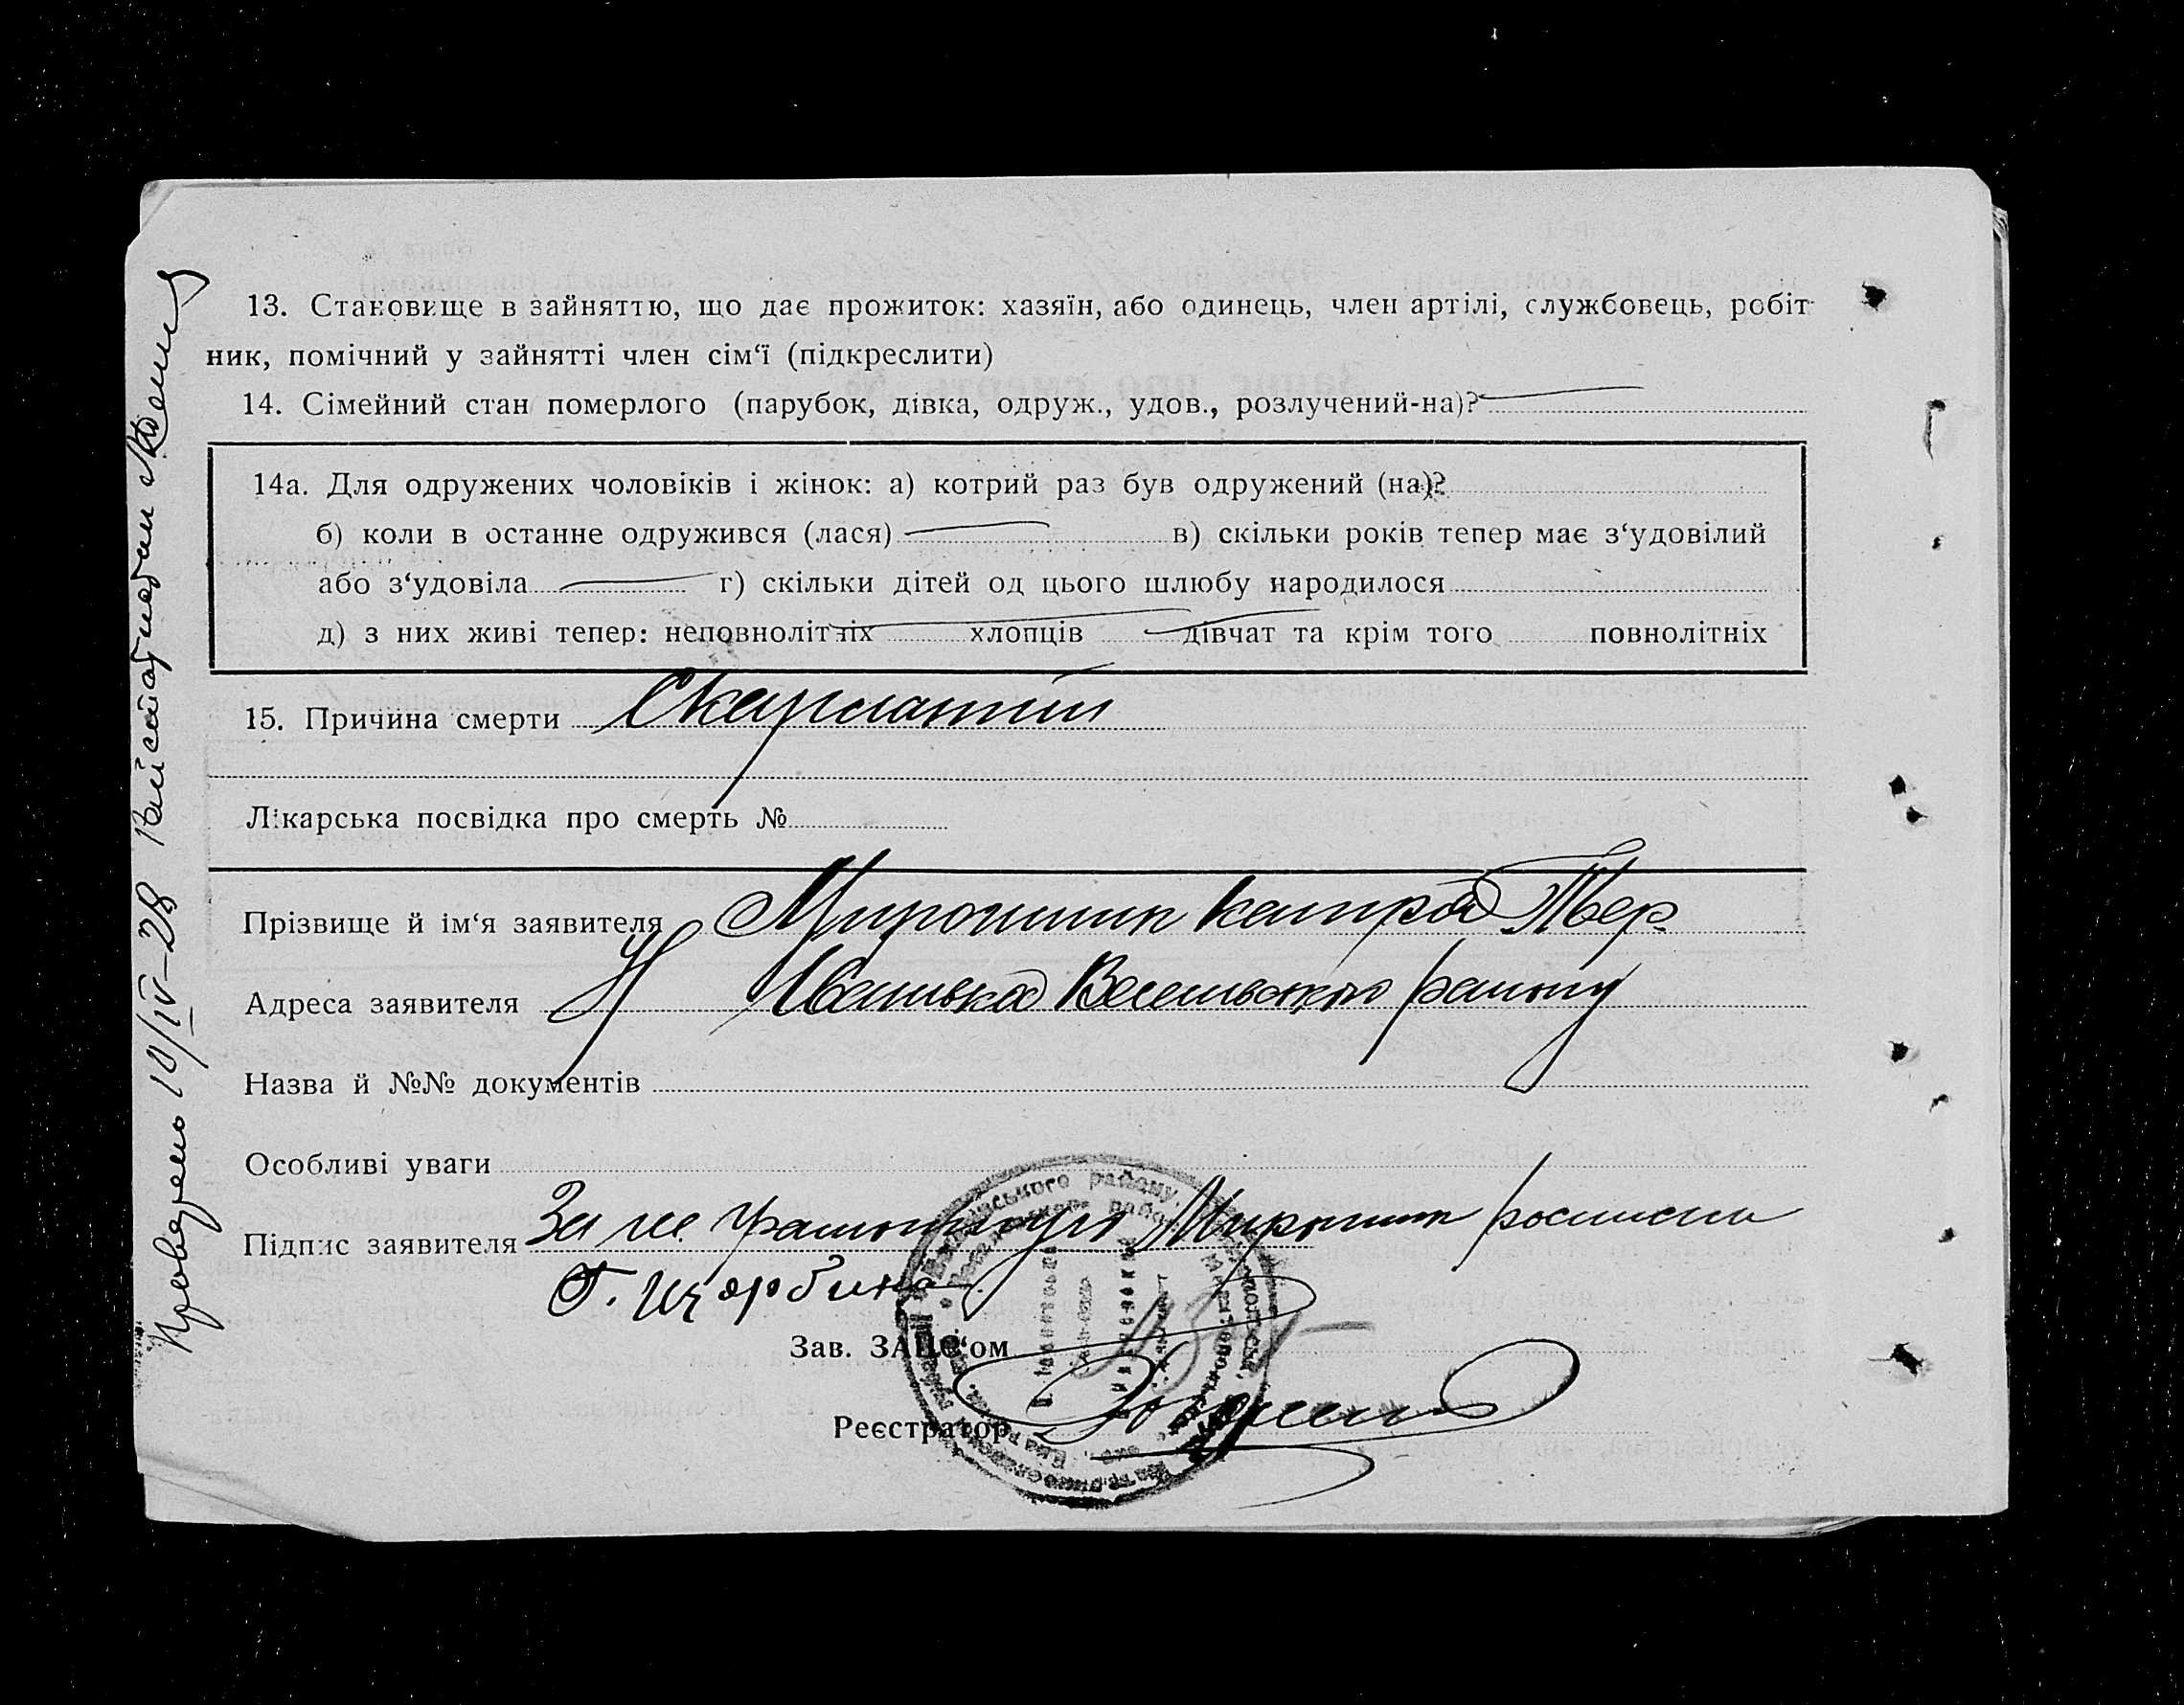 13. Становище в зайняттю, що дає прожиток: хазяїн, або одинець, член артілі, службовець, робіт
ник, помічний у зайнятті член сім‘ї (підкреслити)
14. Сімейний стан померлого (парубок, дівка, одруж., удов., розлучений-на)?
14а. Для одружених чоловіків і жінок: а) котрий раз був одружений (на)?
б) коли в останне одружився (лася) в) скільки років тепер має з‘удовілий
або з‘удовіла г) скільки дітей од цього шлюбу народилося
д) з них живі тепер: неповнолітніх хлопців дівчат та крім того повнолітніх
15. Причина смерти Скарлатин
Лікарська посвідка про смерть №
Прізвище й ім‘я заявителя Мирошник Катря Твер.
Адреса заявителя Іванівка Веселівського району
Назва й №№ документів
Особливі уваги
Підпис заявителя За не грамотную Мирошник росписи
Г. Щербина
Зав. ЗАГС‘ом
Реєстратор
Проведено 10/IV-28